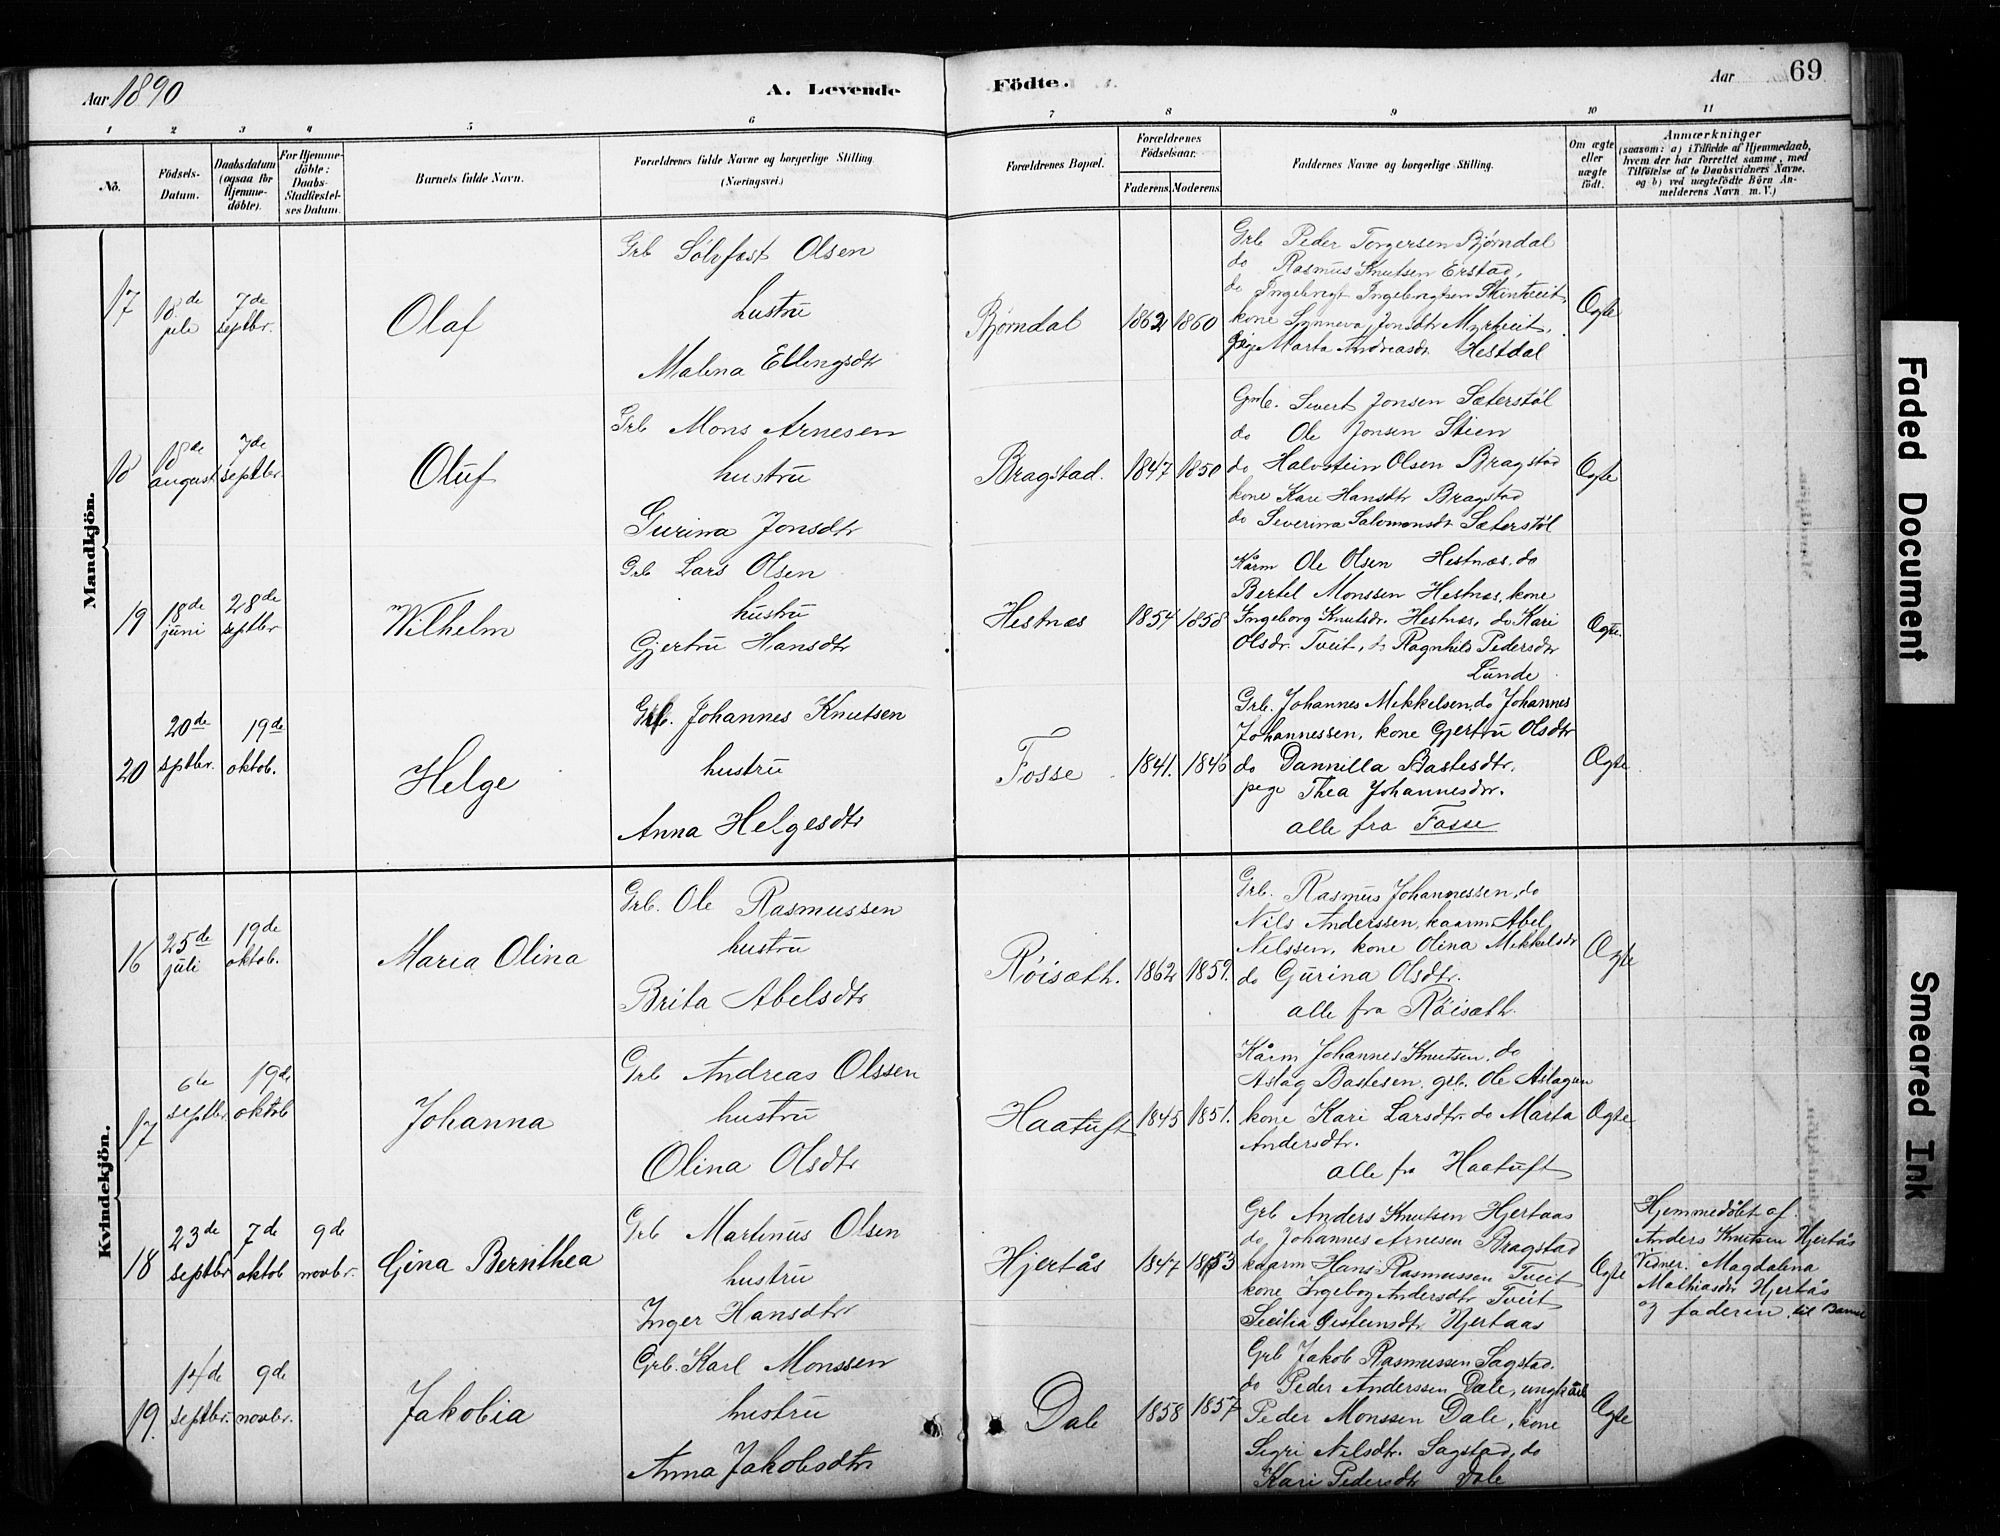 Aar 1890
A. Levende
Födte.
Aar
69
1 2 3 4 5 6 7 8 9 10 11
No.
Födsels-
Datum.
Daabsdatum
(ogsaa for
Hjemme-
döbte).
For Hjemme-
döbte:
Daabs-
Stadfæstel-
ses Datum.
Barnets fulde Navn.
Forældrenes fulde Navne og borgerlige Stilling
(Næringsvei.)
Forældrenes Bopæl.
Forældrenes
Födselsaar.
Faderens. Moderens.
Faddernes Navne og borgerlige Stilling.
Om ægte
eller
uægte
født.
Anmærkninger
(saasom: a) i Tilfælde af Hjemmedaab,
hvem der har forrettet samme, med
Tilføielse af to Daabsvidners Navne.
og b) ved uægtefødte Börn An-
melderens Navn m. V.)
Mandkjön.
17
18de
juli
7de
septbr.
Olaf
Grb Sølvfast Olsen
hustru
Malena Ellingsdtr
Bjørndal
1862
1860
Grb Peder Torgersen Bjørndal
do Rasmus Knutsen Erstad,
do Ingebrigt Ingebrigtsen
kone Synneva Jonsdtr Myrtveit,
pige Marta Andreasdr. Hestdal
Ægte
18
18de
august
7de
septbr.
Oluf
Grb Mons Arnesen
hustru
Gurina Jonsdtr
Bragstad.
1847
1850
Grb. Sivert Jonsen Sæterstøl
do Ole Jonsen Steen
do Halvstein Olsen Bragstad
kone Kari Hansdtr Bragstad
do Severina Salomonsdr Sæterstøl
Ægte
19
18de
juni
28de
septbr
Wilhelm
Grb Lars Olsen
hustru
Gjertru Hansdtr
Hestnæs
1854
1858
Kårm Ole Olsen Hestnæs, do
Bertel Monssen Hestnæs, kone
Ingeborg Knutsdr. Hestnæs, do Kari
Olsdr. Tveit, do Ragnhild Pedersdtr
Lunde
Ægte.
20
20de
sptbr.
19de
oktob.
Helge
Grb. Johannes Knutsen
hustru
Anna Helgesdtr
Fosse
1841.
1846
Grb. Johannes Mikkelsen, do Johannes
Johannessen, kone Gjertru Olsdtr
do Dannilla Bastesdtr.
pege Thea Johannesdtr.
alle fra Fosse
Ægte.
Kvindekjön.
16
25de
juli
19de
oktob.
Maria Olina
Grb. Ole Rasmussen
hustru
Brita Abelsdtr
Röisæth.
1862
1859.
Grb. Rasmus Johannessen, do
Nils Anderssen, kaarm Abel
Nilssen, kone Olina Mikkelsdr
do Gjurina Olsdtr.
alle fra Röisæth.
Ægte
17
6te
septbr.
19de
oktob
Johanna
Grb Andreas Olssen
hustru
Olina Olsdtr
Haatuft
1845
1851.
Kårm Johannes Knutsen, do
Aslag Bastesen, grb. Ole Aslagsen
kone Kari Larsdtr. do Marta
Andersdtr.
alle fra Haatuft
Ægte
18
23de
septbr
7de
oktob
9de
novbr.
Gina Bernthea
Grb Martinus Olsen
hustru
Inger Hansdtr
Hjertås
1847
1853
Grb Anders Knutsen Hjertaas
do Johannes Arnesen Bragstad
kaarm Hans Rasmussen Tveit
kone Ingebog Andersdtr Tveit
Sicilia Østensdtr Hjertaas
Ægte
Hjemmedøbt af
Anders Knutsen Hjertås
Vidner: Magdalena
Mathiasdtr Hjertås
og faderen til Barnet
19.
14de
septbr.
9de
novbr.
Jakobia
Grb. Karl Monssen
hustru
Anna Jakobsdtr
Dale
1858
1857
Grb Jakob Rasmussen Sagstad.
do Peder Anderssen Dale, ungkarl
Peder Monssen Dale, kone
Sigri Nilsdtr. Sagstad, do
Kari Pedersdtr Dale
Ægte
Faded Document
Smeared Ink